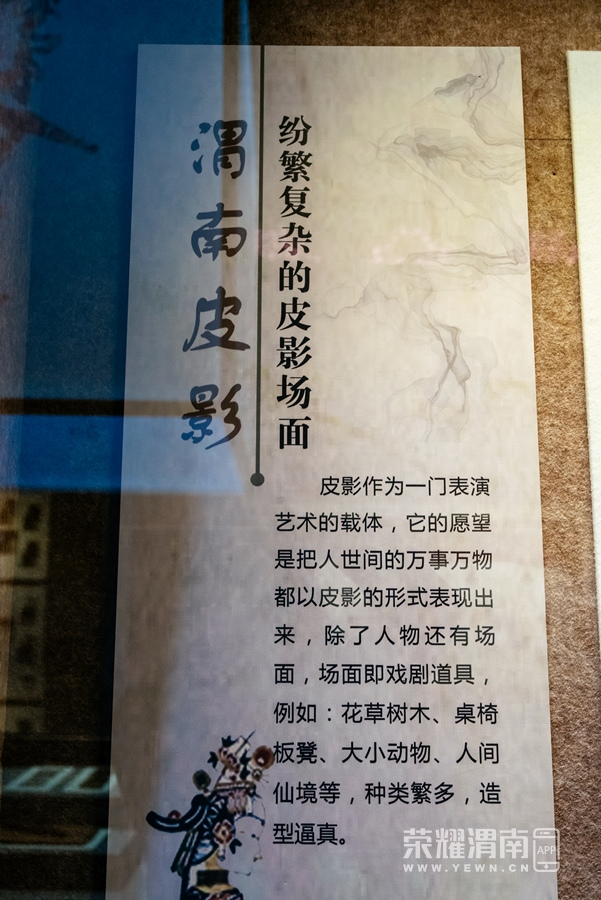 渭南皮影
纷繁复杂的皮影场面
皮影作为一门表演
艺术的载体，它的愿望
是把人世间的万事万物
都以皮影的形式表现出
来，除了人物还有场
面，场面即戏剧道具，
例如：花草树木、桌椅
板凳、大小动物、人间
仙境等，种类繁多，造
型逼真。
荣耀渭南APP
WWW.YEWN.CN